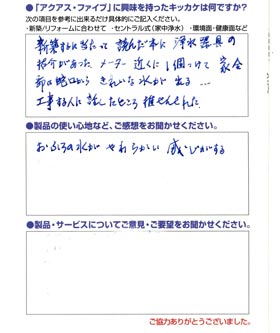 ●「アクアス・ファイブ」に興味を持ったキッカケは何ですか?
次の項目を参考に出来るだけ具体的にご記入ください。
・新築/リフォームに合わせて ・セントラル式(家中浄水) ・環境面・健康面など
新築するに当たって 読んだ本に 浄水器具の
紹介があった。メーター近くに1個つけて 家全
部の蛇口から きれいな水が出る…
工事する人に話したところ 推せんされた。
●製品の使い心地など、ご感想をお聞かせください。
おふろの水が やわらかい 感じがする
●製品・サービスについてご意見・ご要望をお聞かせください。
ご協力ありがとうございました。